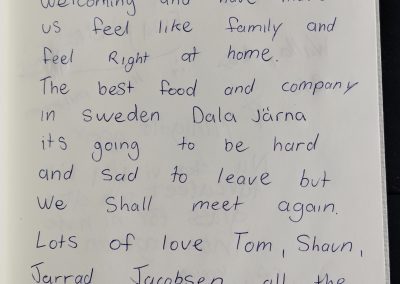 welcoming and have made
us feel like family and
feel Right at home.
The best food and company
in sweden Dala Järna
its going to be hard
and sad to leave but
We Shall meet again.
Lots of love Tom, Shaun,
Jarrad Jacobsen, all the